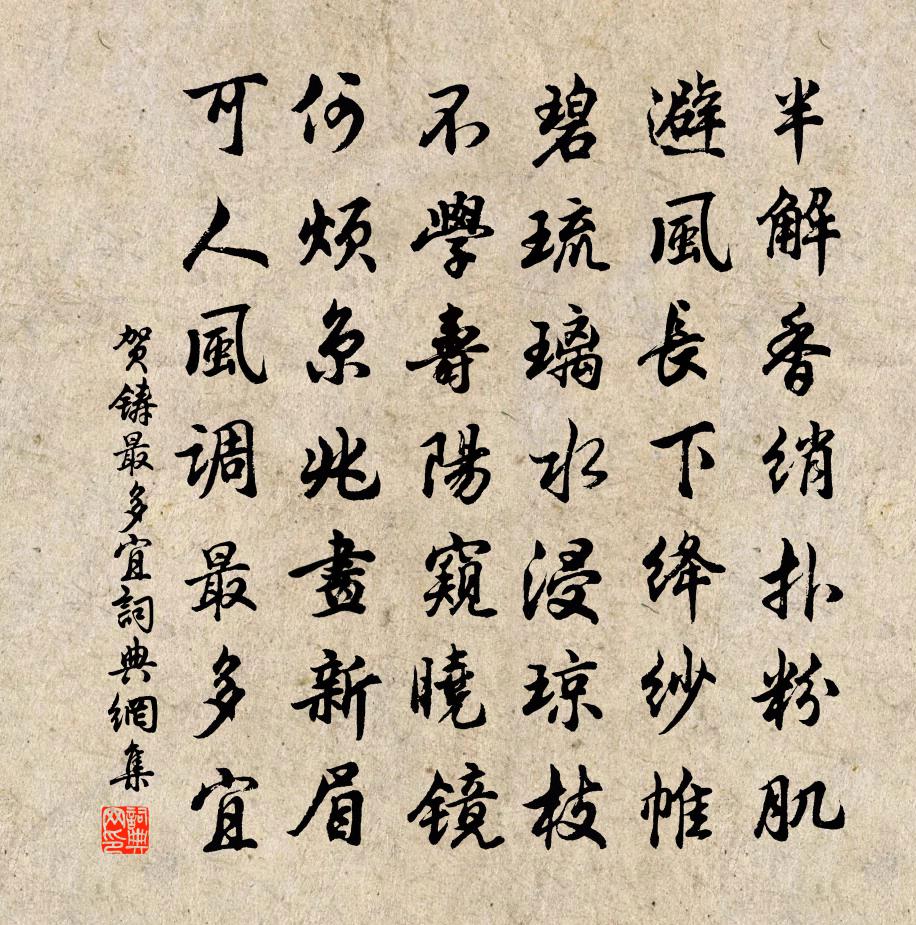 半解香绡扑粉肌
避風長下绛纱帷
碧琉璃水浸琼枝
不學壽陽窺曉镜
何烦京兆畫新眉
可人風调最多宜
贺铸最多宜詞典網集
詞典网印